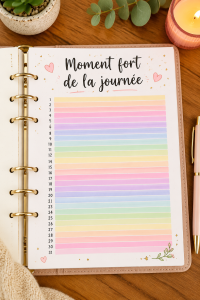 Moment fort
de la journée
1
2
3
4
5
6
7
8
9
10
11
12
13
14
15
16
17
18
19
20
21
22
23
24
25
26
27
28
29
30
31